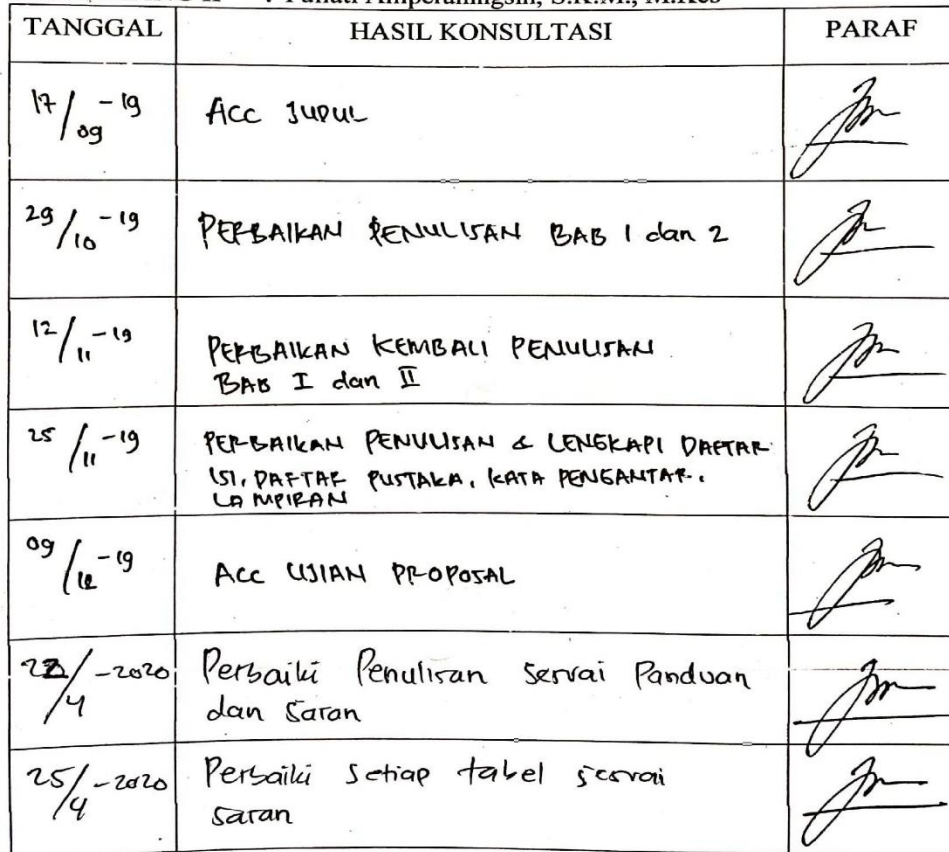 Amperaningsih, S.K.M., M.Kes
TANGGAL HASIL KONSULTASI PARAF
17/09-19 Acc JUDUL
29/10-19 PERBAIKAN PENULISAN BAB 1 dan 2
12/11-19 PERBAIKAN KEMBALI PENULISAN
BAB I dan II
25/11-19 PERBAIKAN PENULISAN & LENGKAPI DAFTAR
ISI, DAFTAR PUSTAKA, KATA PENGANTAR,
LAMPIRAN
09/12-19 Acc UJIAN PROPOSAL
22/4-2020 Perbaiki Penulisan sesuai Panduan
dan Saran
25/4-2020 Perbaiki setiap tabel sesuai
saran